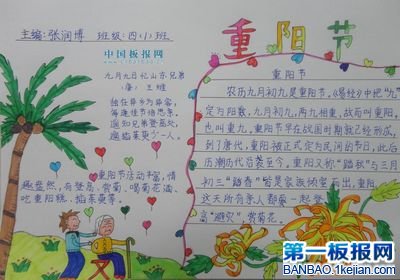 主编:张润博 班级:四(1)班
中国板报网
www.1kejian.com
九月九日忆山东兄弟
(唐) 王维
独在异乡为异客,
每逢佳节倍思亲。
遥知兄弟登高处,
遍插茱萸少一人。
重阳节活动丰富,情
趣盎然,有登高、赏菊、喝菊花酒、
吃重阳糕、插茱萸等。
重阳节
重阳节
农历九月初九是重阳节。《易经》中把“九”
定为阳数,九月初九,两九相重,故而叫重阳,
也叫重九。重阳节早在战国时期就已经形成,
到了唐代,重阳被正式定为民间的节日,此后
历朝历代沿袭至今。重阳又称“踏秋”与三月
初三“踏春”皆是家族倾室而出,重阳
这天所有亲人都要一起登
高“避灾”,赏菊花。
第一板报网
BANBAO.1kejian.com